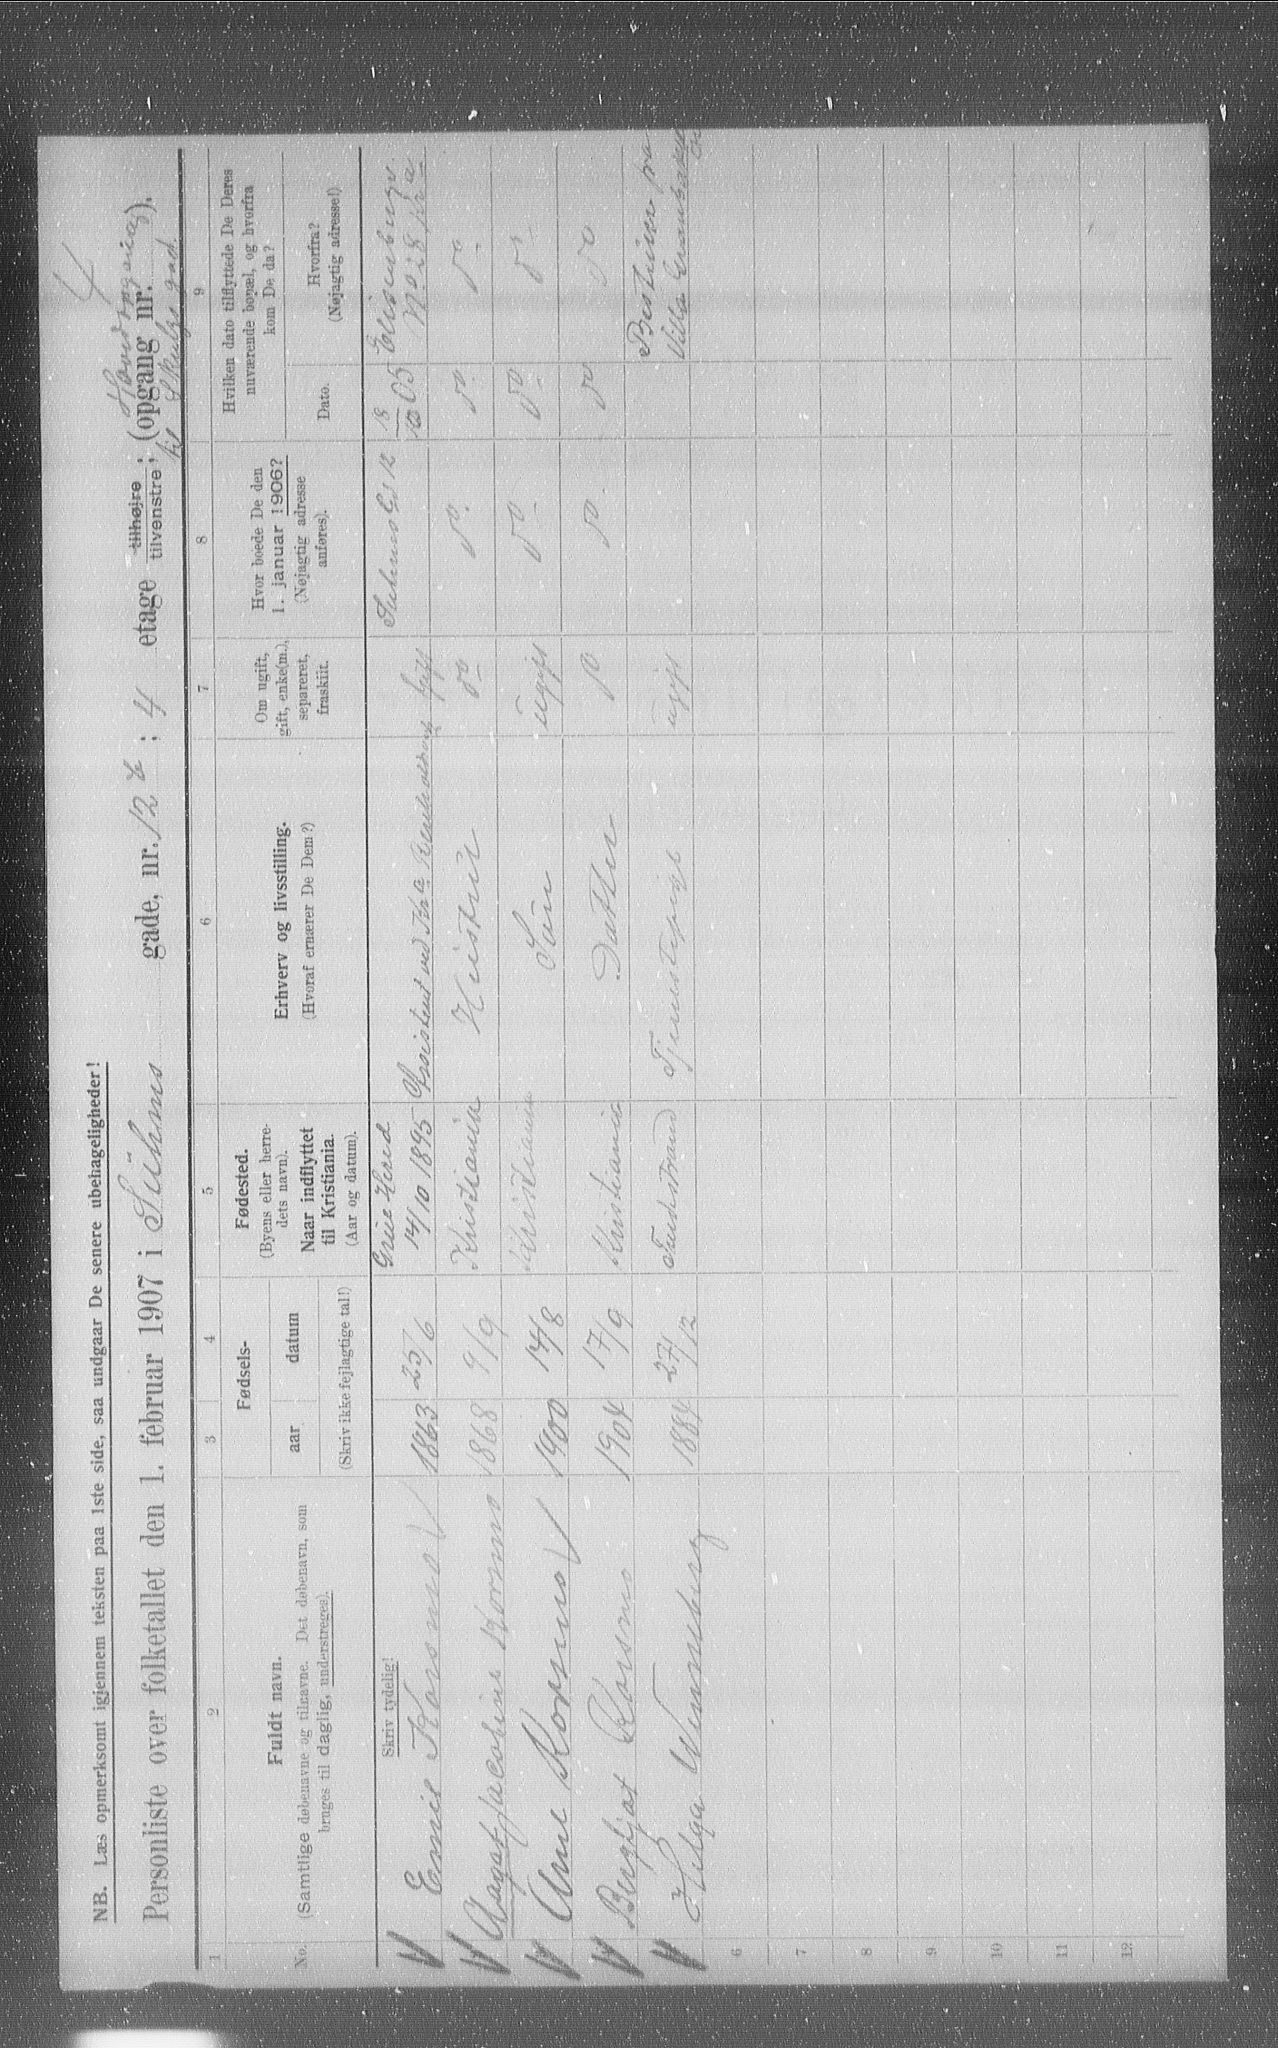 NB. Læs opmerksomt igjennem teksten paa 1ste side, saa undgaar De senere ubehageligheder!
4
Personliste over folketallet den 1. februar 1907 i Suhms gade, nr. 12 b ; 4 etage tilhøjre, tilvenstre, (opgang nr. ).
til
1 2 3 4 5 6 7 8 9
No.
Fuldt navn.
(Samtlige døbenavne og tilnavne. Det døbenavn, som
bruges til daglig, understreges).
Fødsels-
aar datum
(Skriv ikke fejlagtige tal!)
Fødested.
(Byens eller herre-
dets navn).
Naar indflyttet
til Kristiania.
(Aar og datum).
Erhverv og livsstilling.
(Hvoraf ernærer De Dem?)
Om ugift,
gift, enke(m.),
separeret,
fraskilt.
Hvor boede De den
1. januar 1906?
(Nøjagtig adresse
anføres).
Hvilken dato tilflyttede De Deres
nuværende bopæl, og hvorfra
kom De da?
Dato.
Hvorfra?
(Nøjagtig adresse!)
Skriv tydelig!
Emil Korsmo 1863 25/6 Grue Hered 14/10 1895 Assistent ved gift Suhms Gd 12 18/10 05 No 28
Aagot Jacobine Korsmo 1868 9/9 Kristiania Hustru do do do do
Arne Korsmo 1900 14/8 Kristiania Søn ugift do do do
Bergljot Korsmo 1904 17/9 Kristiania Datter do do do do
Helga 1884 27/12 Tjenestepige ugift fra
Villa
6
7
8
9
10
11
12